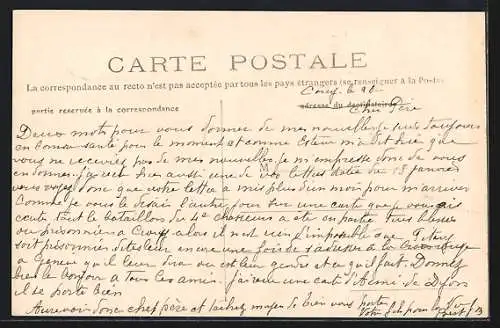 CARTE POSTALE
La correspondance au recto n'est pas acceptée par tous les pays étrangers (se renseigner à la Poste)
partie reservée à la correspondance
adresse du destinataire
Cher Père
Deux mots pour vous donner de mes nouvelles je suis toujours
en bonne santé pour le moment et comme m'a dit que
vous ne receviez pas de mes nouvelles je m'empresse donc de vous
en donner. j'ai reçu hier aussi une de vos lettres datée du 13 janvier
vous voyez donc que votre lettre a mis plus d'un mois pour m'arriver
Comme je vous le disais l'autre jour sur une carte que je vous ai
tout le bataillon du 4e chasseurs a été en partie tués blessés
ou prisonniers a alors il est rien d'impossible que
soit prisonnier dites leur encore une fois de s'adresser a la Croix rouge
a Genève qui leur dira ou est leur gendre et ce qu'il fait. Donnez
bien le bonjour a tous les amis. j'ai reçu une carte d'Aimé de Dijon
il se porte bien
Au revoir donc cher père et tachez moyen de bien vous porter
Votre fils pour la vie